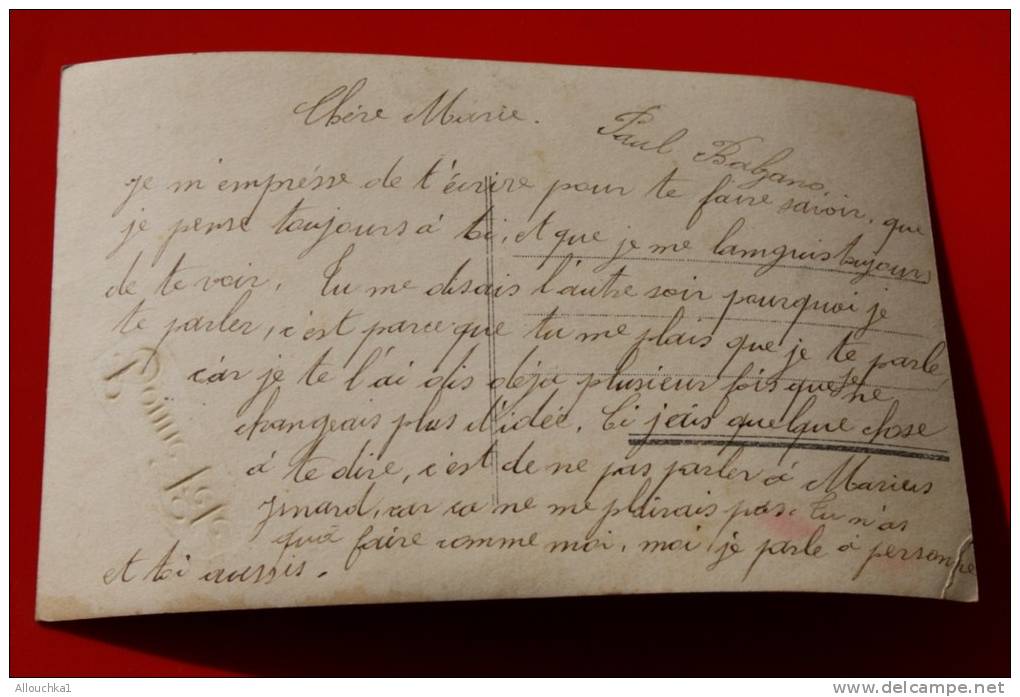 Chère Marie.
Paul Balzano.
je m'emprésse de t'écrire pour te faire savoir, que
je pense toujours à toi, et que je me lamguis toujours
de te voir. Tu me disais l'autre soir pourquoi je
te parler, c'est parce que tu me plais que je te parle,
car je te l'ai dis déja plusieur fois que je ne
changeais plus d'idée. Ci jeais quelque chose
à te dire, c'est de ne pas parler à Marius
car ca ne me plairais pas. Tu n'as
quà faire comme moi, moi je parle à personne
et toi aussis.
Allouchka1
delcampe.net